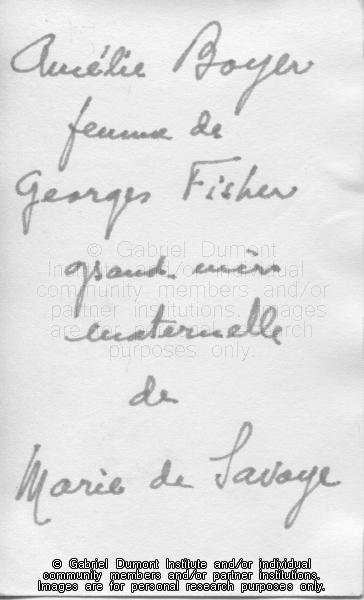 Amélie Boyer
femme de
Georges Fisher
© Gabriel Dumont
Institute and/or individual
grand-mère
community members and/or
partner institutions. Images
maternelle
are for personal research
purposes only.
de
Marie de Savoye
© Gabriel Dumont Institute and/or individual
community members and/or partner institutions.
Images are for personal research purposes only.